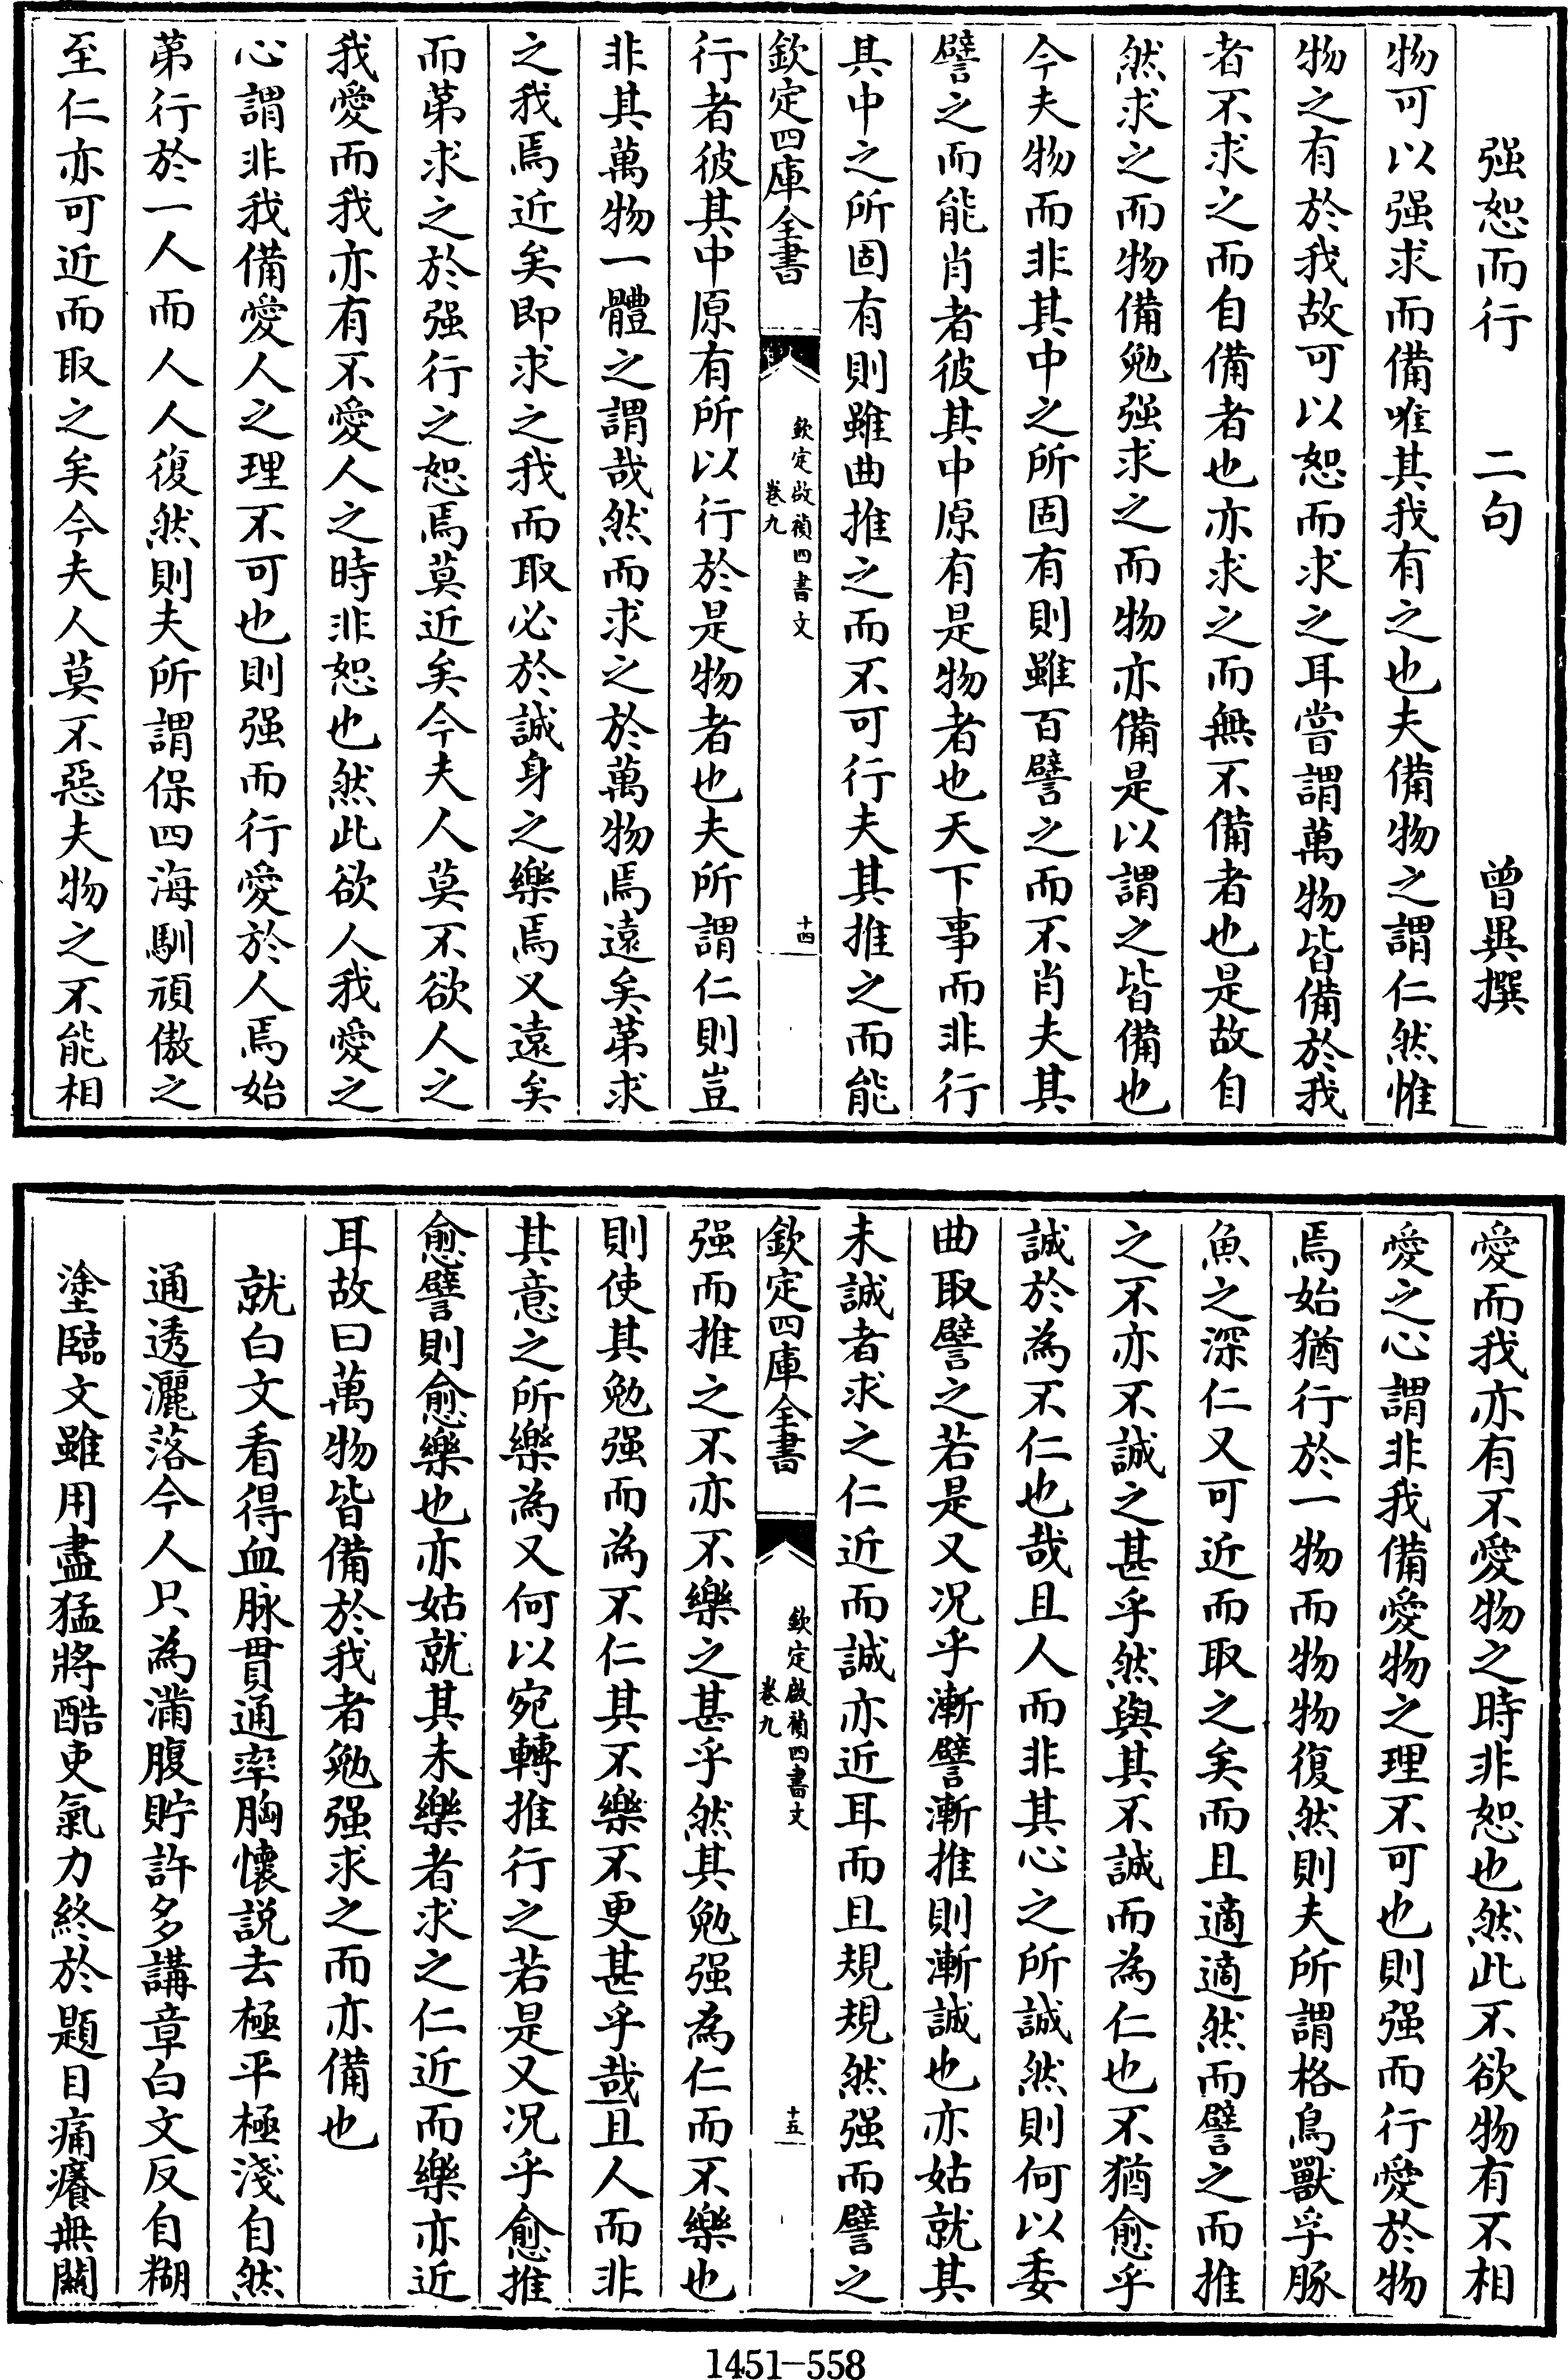 强恕而行　二句　曾異撰
物可以强求而備唯其我有之也夫備物之謂仁然惟
物之有於我故可以恕而求之耳嘗謂萬物皆備於我
者不求之而自備者也亦求之而無不備者也是故自
然求之而物備勉强求之而物亦備是以謂之皆備也
今夫物而非其中之所固有則雖百譬之而不肖夫其
譬之而能肖者彼其中原有是物者也天下事而非行
其中之所固有則雖曲推之而不可行夫其推之而能
欽定四庫全書
欽定啟禎四書文
卷九
十四
行者彼其中原有所以行於是物者也夫所謂仁則豈
非其萬物一體之謂哉然而求之於萬物焉遠矣苐求
之我焉近矣即求之我而取必於誠身之樂焉又遠矣
而苐求之於强行之恕焉莫近矣今夫人莫不欲人之
我愛而我亦有不愛人之時非恕也然此欲人我愛之
心謂非我備愛人之理不可也則强而行愛於人焉始
苐行於一人而人人復然則夫所謂保四海馴頑傲之
至仁亦可近而取之矣今夫人莫不惡夫物之不能相
愛而我亦有不愛物之時非恕也然此不欲物有不相
愛之心謂非我備愛物之理不可也則强而行愛於物
焉始猶行於一物而物物復然則夫所謂格鳥獸孚豚
魚之深仁又可近而取之矣而且適適然而譬之而推
之不亦不誠之甚乎然與其不誠而為仁也不猶愈乎
誠於為不仁也哉且人而非其心之所誠然則何以委
曲取譬之若是又况乎漸譬漸推則漸誠也亦姑就其
未誠者求之仁近而誠亦近耳而且規規然强而譬之
欽定四庫全書
欽定啟禎四書文
卷九
十五
强而推之不亦不樂之甚乎然其勉强為仁而不樂也
則使其勉强而為不仁其不樂不更甚乎哉且人而非
其意之所樂為又何以宛轉推行之若是又况乎愈推
愈譬則愈樂也亦姑就其未樂者求之仁近而樂亦近
耳故曰萬物皆備於我者勉强求之而亦備也
就白文看得血脉貫通率胸懷説去極平極淺自然
通透灑落今人只為滿腹貯許多講章白文反自糊
塗臨文雖用盡猛將酷吏氣力終於題目痛癢無關
1451-558